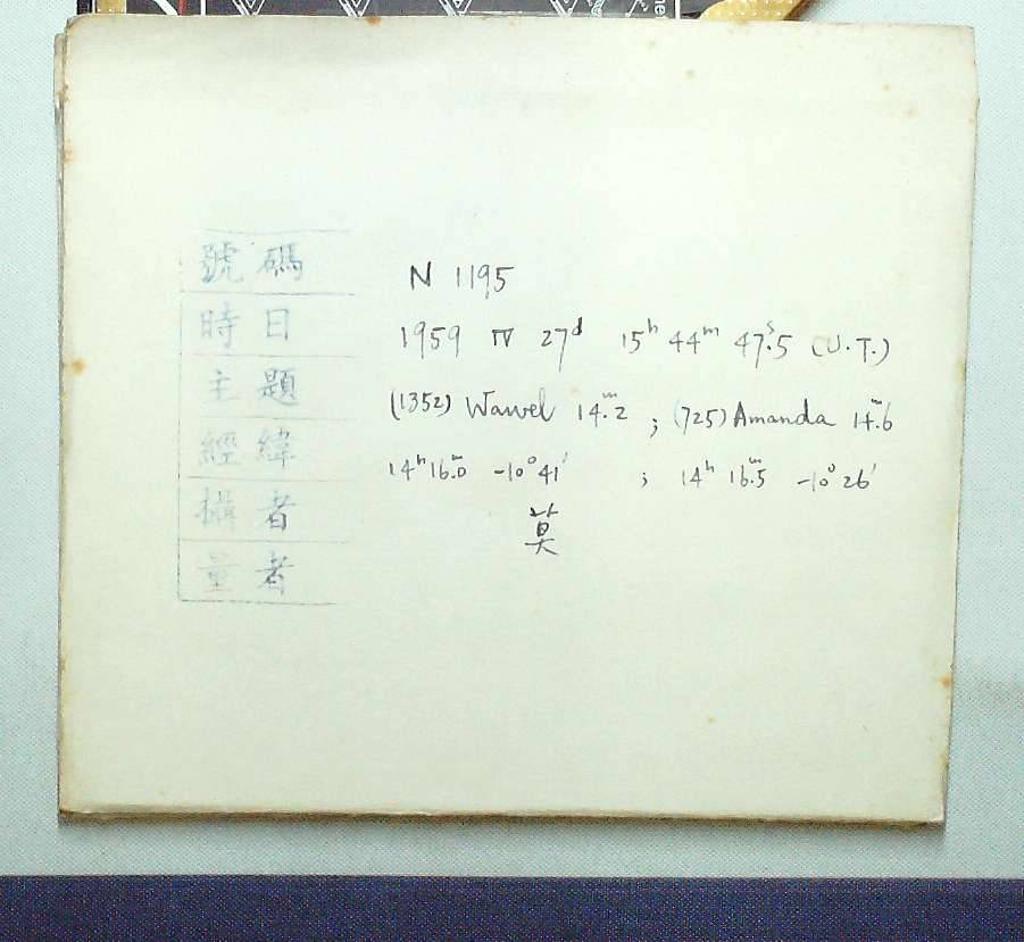 號碼 N 1195
時日 1959 IV 27ᵈ 15ʰ 44ᵐ 47ˢ.5 (U.T.)
主題 (1352) Wawel 14ᵐ.2 ; (725) Amanda 14ᵐ.6
經緯 14ʰ16ᵐ.0 -10°41' ; 14ʰ 16ᵐ.5 -10°26'
攝者 莫
量者